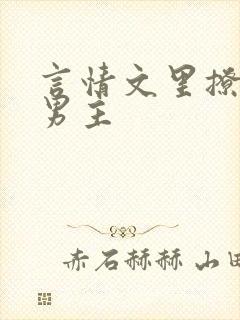 言情文里撩
男主
赤石赫赫 山田